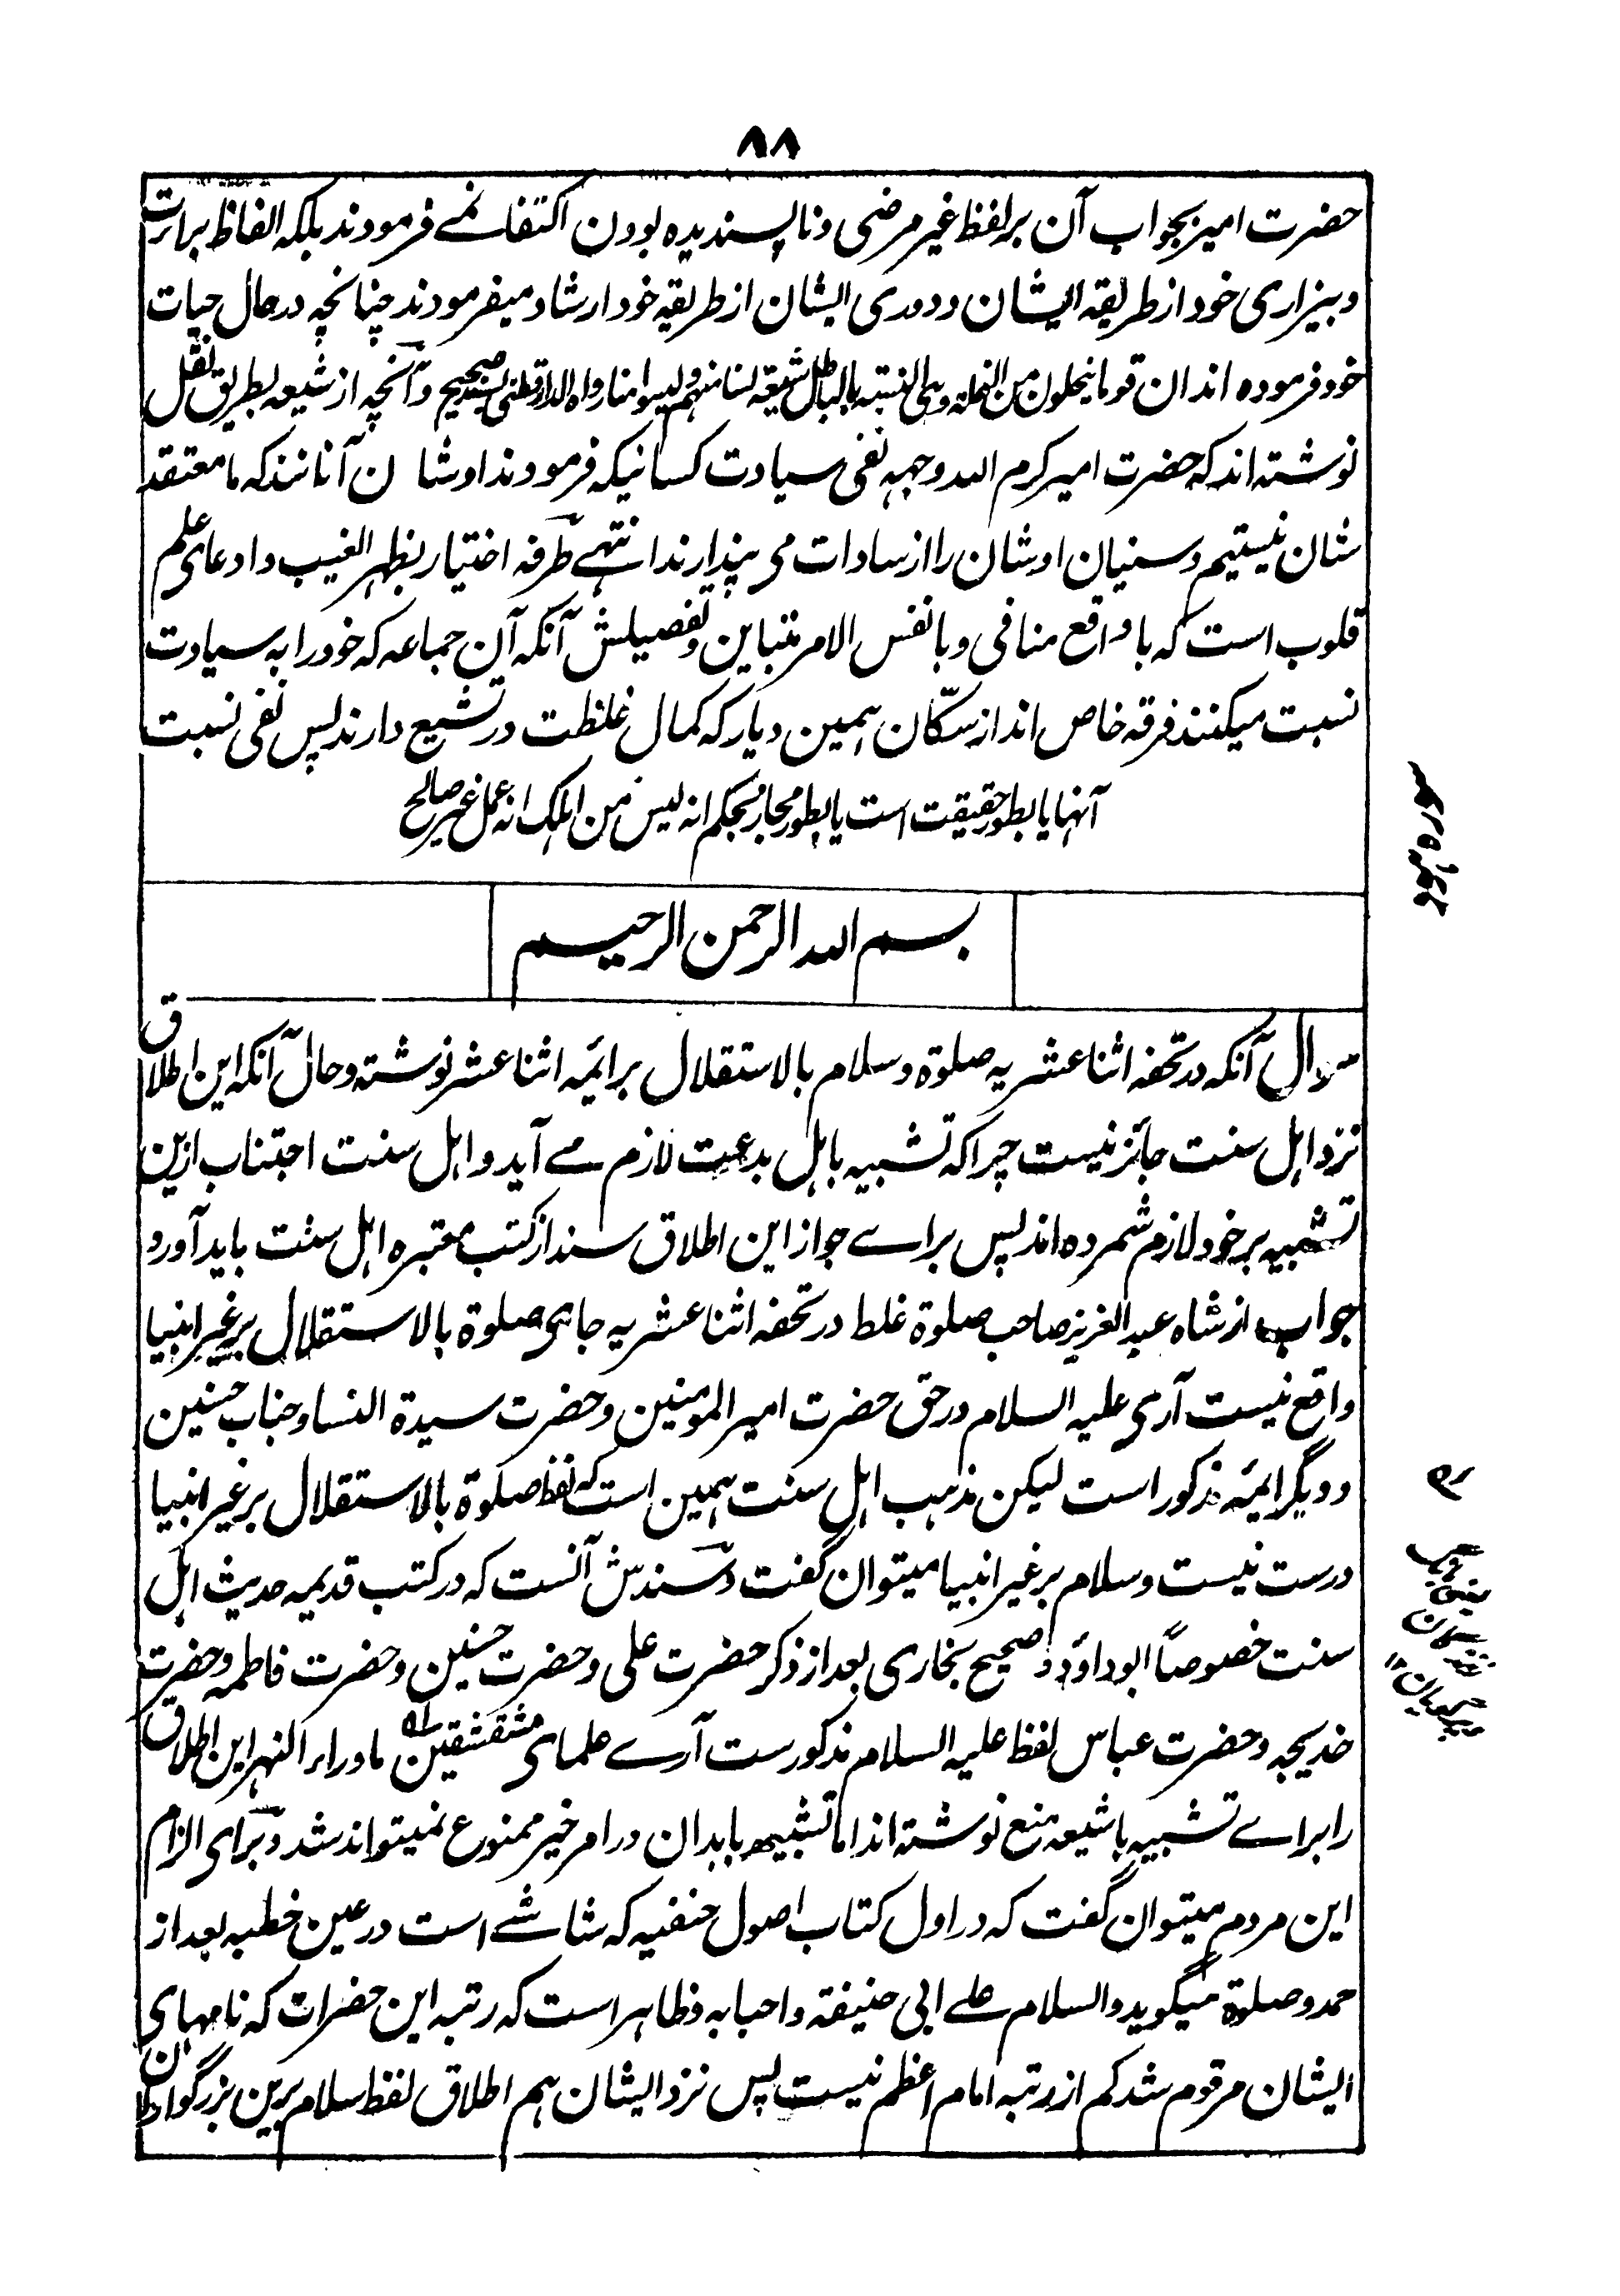 ۸۸
حضرت امیر بجواب آن بر لفظ غیر مرضی و ناپسندیده بودن اکتفا نمے فرمودند بلکہ الفاظ براءت
و بیزاری خود از طریقہ ایشان و دوری ایشان از طریقہ خود ارشاد میفرمودند چنانچہ در حال حیات
خود فرموده اند ان قوما ینحلون من النحلة وہی النسبتہ بالباطل شیعتہ لسنا منہم ولیسوا منا رواہ الدارقطنی بسند صحیح و آنچہ از شیعہ بطریق نقل
نوشتہ اند کہ حضرت امیر کرم اللہ وجہہ نفی سیادت کسانیکہ فرمودند اوشان آنانند کہ ما معتقد
شان نیستیم و سنیان اوشان را از سادات می پندارند انتہے طرفہ اختیار بظہر الغیب و ادعای علم
قلوب است کہ با واقع منافی و با نفس الامر متباین و تفصیلش آنکہ آن جماعہ کہ خود را بہ سیادت
نسبت میکنند فرقہ خاص اند از سکّان ہمین دیار کہ کمال غلظت در تشیع دارند پس نفی نسبت
آنہا یا بطور حقیقت است یا بطور مجاز بحکم انہ لیس من اہلک انہ عمل غیر صالح
بسم اللہ الرحمن الرحیم
سوال آنکہ در تحفہ اثنا عشریہ صلوة و سلام بالاستقلال بر ائمہ اثنا عشر نوشتہ و حال آنکہ این اطلاق
نزد اہل سنت جائز نیست چرا کہ تشبیہ باہل بدعت لازم مے آید و اہل سنت اجتناب ازین
تشبیہ بر خود لازم شمرده اند پس براے جواز این اطلاق سند از کتب معتبرہ اہل سنت باید آورد
جواب از شاہ عبد العزیز صاحب صلوة غلط در تحفہ اثنا عشریہ جای صلوة بالاستقلال بر غیر انبیا
واقع نیست آری علیہ السلام در حق حضرت امیر المومنین و حضرت سیدة النسا و جناب حسنین
و دیگر ائمہ مذکور است لیکن مذہب اہل سنت ہمین است کہ لفظ صلوة بالاستقلال بر غیر انبیا
درست نیست و سلام بر غیر انبیا میتوان گفت و سندش آنست کہ در کتب قدیمہ حدیث اہل
سنت خصوصاً ابوداؤد و صحیح بخاری بعد از ذکر حضرت علی و حضرت حسنین و حضرت فاطمہ و حضرت
خدیجہ و حضرت عباس لفظ علیہ السلام مذکورست آرے علمای متقشقین ماوراء النہر این اطلاق
را براے تشبیہ با شیعہ منع نوشتہ اند اما تشبیہ بابدان در امر خیر ممنوع نمیتواند شد و برای الزام
این مردم میتوان گفت کہ در اول کتاب اصول حنفیہ کہ شاشے است در عین خطبہ بعد از
حمد و صلوة میگوید والسلام علے ابی حنیفة و احبابہ و ظاہر است کہ رتبہ این حضرات کہ نامہای
ایشان مرقوم شد کم از رتبہ امام اعظم نیست پس نزد ایشان ہم اطلاق لفظ سلام برین بزرگواران